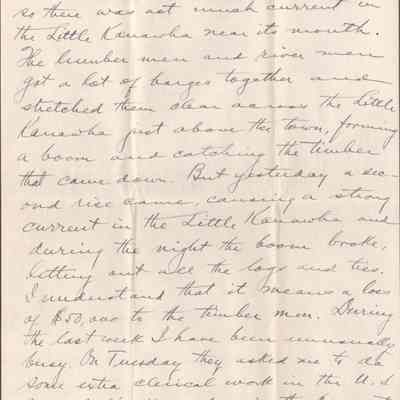 so there was not much current in
the Little Kanawha near its mouth.
The lumber men and river men
got a lot of barges together and
stretched them clear across the Little
Kanawha just above the town, forming
a boom and catching the timber
that came down. But yesterday a sec-
ond rise came, causing a strong
current in the Little Kanawha and
during the night the boom broke,
letting out all the logs and ties.
I understand that it means a loss
of $50,000 to the timber men. During
the last week I have been unusually
busy. On Tuesday they asked me to do
some extra clerical work in the U. S.